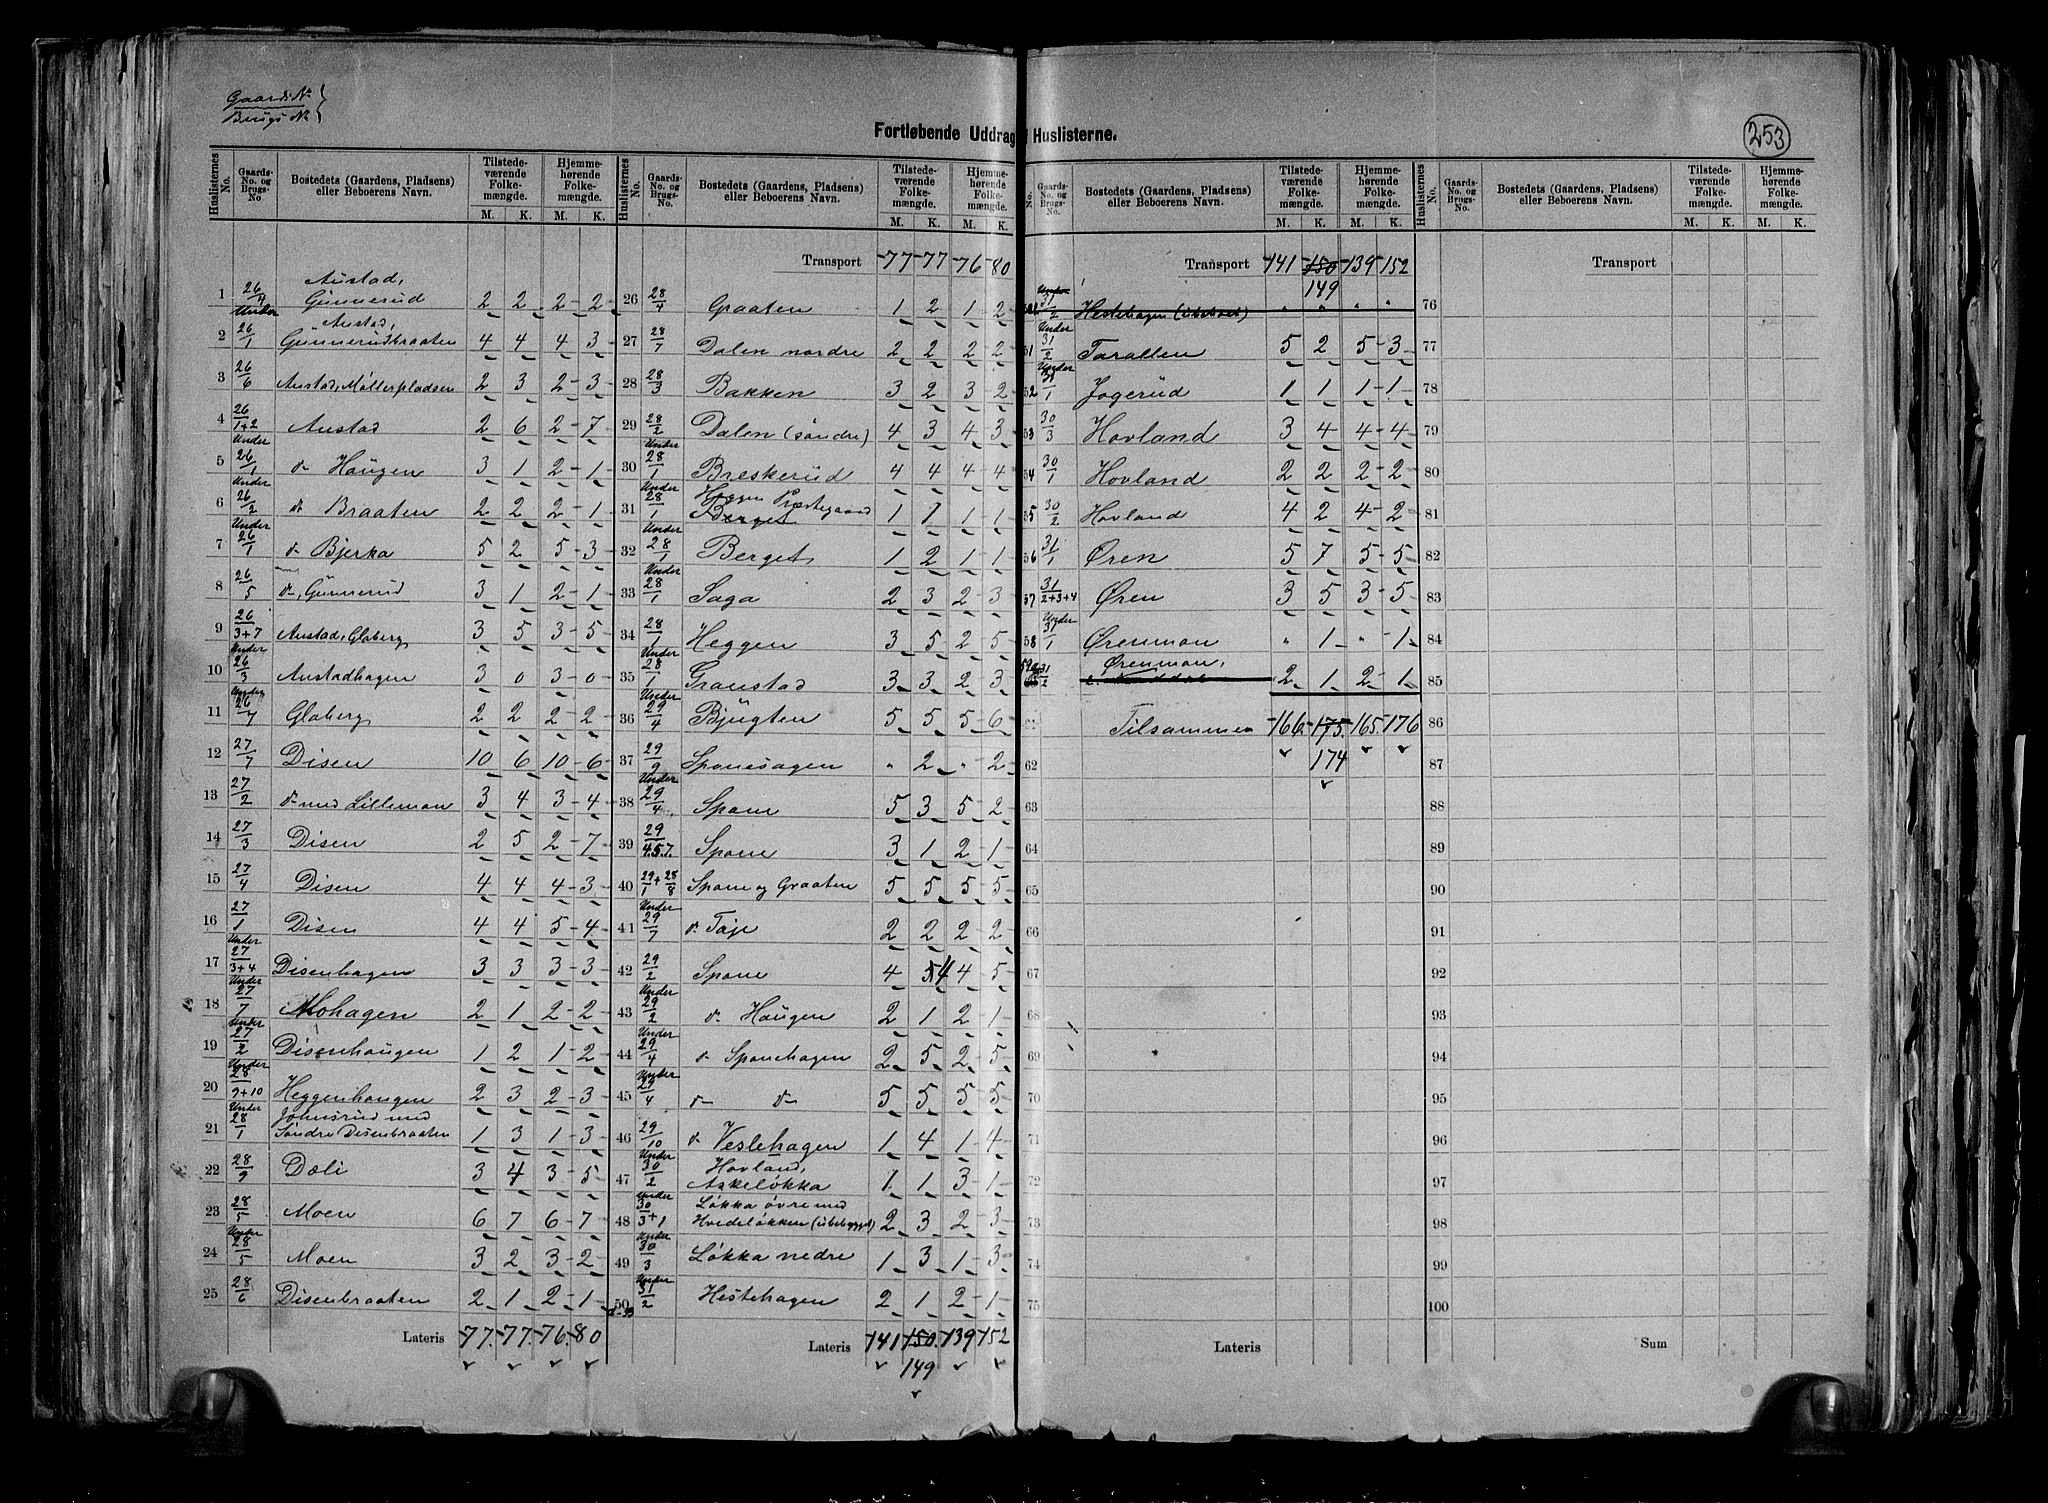 Gaards No.
Brugs No.
253
Fortløbende Uddrag Huslisterne.
Huslisternes No. | Gaards-No. og Brugs-No. | Bostedets (Gaardens, Pladsens) eller Beboerens Navn. | Tilstedeværende Folkemængde. M. K. | Hjemmehørende Folkemængde. M. K.
1 26/4 Austad, Gunnerud 2 2 2 2
2 Under 26/1 Austad, Gunnerudbraaten 4 4 4 3
3 26/6 Austad, Møllerpladsen 2 3 2 3
4 26/1+2 Austad 2 6 2 7
5 Under 26/1 do Haugen 3 1 2 1
6 Under 26/2 do Braaten 2 2 2 1
7 Under 26/1 do Bjerka 5 2 5 3
8 26/5 do, Gunnerud 3 1 2 1
9 26/3+7 Austad, Glaberg 3 5 3 5
10 Under 26/3 Austadhagen 3 0 3 0
11 Under 26/7 Glaberg 2 2 2 2
12 27/7 Disen 10 6 10 6
13 27/2 do med Lillemon 3 4 3 4
14 27/3 Disen 2 5 2 7
15 27/4 Disen 4 4 4 3
16 27/1 Disen 4 4 5 4
17 Under 27/3+4 Disenhagen 3 3 3 3
18 Under 27/7 Mohagen 2 1 2 2
19 Under 27/2 Disenhaugen 1 2 1 2
20 Under 28/9+10 Heggenhaugen 2 3 2 3
21 Under 28/1 Johnsrud med Søndre Disenbraaten 1 3 1 3
22 28/9 Dæli 3 4 3 5
23 28/5 Moen 6 7 6 7
24 Under 28/5 Moen 3 2 3 2
25 28/6 Disenbraaten 2 1 2 1
Lateris 77. 77. 76 80
Huslisternes No. | Gaards-No. og Brugs-No. | Bostedets (Gaardens, Pladsens) eller Beboerens Navn. | Tilstedeværende Folkemængde. M. K. | Hjemmehørende Folkemængde. M. K.
Transport 77 77 76 80
26 28/4 Graaten 1 2 1 2
27 28/7 Dalen nordre 2 2 2 2
28 28/3 Bakken 3 2 3 2
29 28/2 Dalen (søndre) 4 3 4 3
30 Under 28/1 Breskerud 4 4 4 4
31 Under 28/1 Heggen Præstegaard Berget 1 1 1 1
32 Under 28/1 Berget 1 2 1 1
33 Under 28/1 Saga 2 3 2 3
34 28/1 Heggen 3 5 2 5
35 Under 28/1 Granstad 3 3 2 3
36 Under 29/4 Bjugten 5 5 5 6
37 29/9 Sponesagen " 2 " 2
38 Under 29/4 Spone 5 3 5 2
39 29/4.5.7. Spone 3 1 2 1
40 29/1 + 28/8 Spone og Graaten 5 5 5 5
41 Under 29/7 do Taje 2 2 2 2
42 29/2 Spone 4 5 4 4 5
43 Under 29/2 do Haugen 2 1 2 1
44 Under 29/4 do Sponehagen 2 5 2 5
45 Under 29/4 do do 5 5 5 5
46 29/10 do Veslehagen 1 4 1 4
47 Under 30/2 Hovland, Askeløkka 1 1 3 1
48 Under 30/3+1 Løkka øvre med Hvedeløkken (ubebygget) 2 3 2 3
49 Under 30/3 Løkka nedre 1 3 1 3
50 Under 31/2 Hestehagen 2 1 2 1
Lateris 141 150. 139 152
149
No. | Gaards-No. og Brugs-No. | Bostedets (Gaardens, Pladsens) eller Beboerens Navn. | Tilstedeværende Folkemængde. M. K. | Hjemmehørende Folkemængde. M. K.
Transport 141 150 139 152
149
Under 31/2 Hestehagen (ubeboet) " " " "
51 Under 31/2 Tarallen 5 2 5 3
52 Under 31/1 Jogerud 1 1 1 1
53 30/3 Hovland 3 4 4 4
54 30/1 Hovland 2 2 2 2
55 30/2 Hovland 4 2 4 2
56 31/1 Øren 5 7 5 5
57 31/2+3+4 Øren 3 5 3 5
58 Under 31/1 Ørenmon " 1 " 1
59 31/2 Ørenmon, 2 1 2 1
Tilsammen 166. 175. 165. 176
174
62
63
64
65
66
67
68
69
70
71
72
73
74
75
Lateris
Huslisternes No. | Gaards-No. og Brugs-No. | Bostedets (Gaardens, Pladsens) eller Beboerens Navn. | Tilstedeværende Folkemængde. M. K. | Hjemmehørende Folkemængde. M. K.
Transport
76
77
78
79
80
81
82
83
84
85
86
87
88
89
90
91
92
93
94
95
96
97
98
99
100
Sum